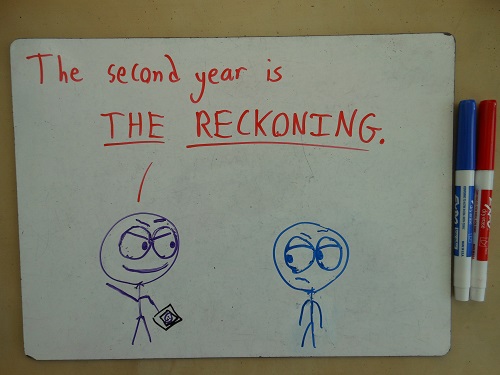 The second year is
THE RECKONING.
EXPO